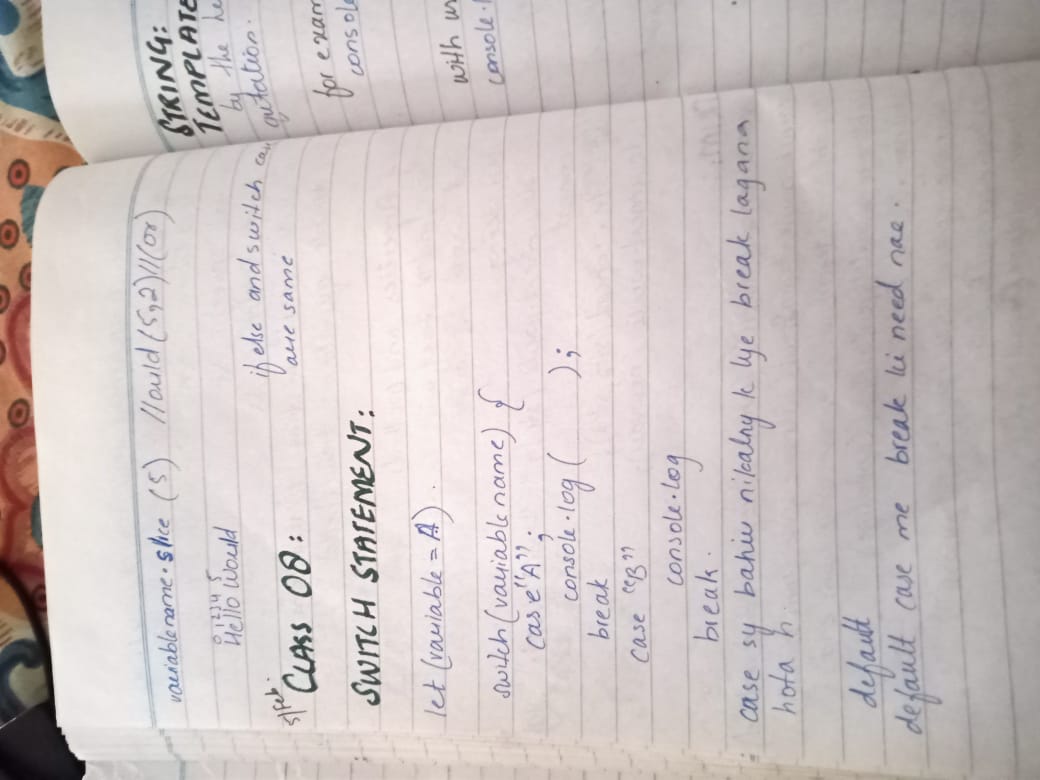 variablename.slice (5) //ould (5,2) // (or)
0 1 2 3 4 5
Hello Would
if else and switch can
are same
5/Feb.
CLASS 08:
SWITCH STATEMENT:
let (variable = A).
switch (variablename) {
case "A";
console.log ( );
break
case "B"
console.log
break.
case sy bahir nikalny k lye break lagana
hota h
default
default case me break ki need nae.
STRING:
TEMPLATE
by the he
qutation.
for exam
console
with us
console.l